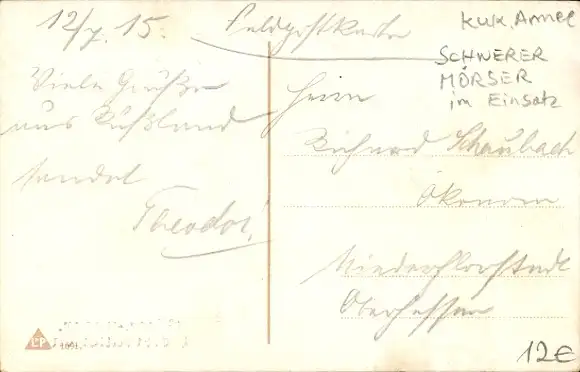 12/7. 15.
Feldpostkarte
K.u.K. Armee
SCHWERER
MÖRSER
im Einsatz
Viele Grüße
aus Rußland
sendet
Theodor!
Herrn
Richard Schaubach
Ökonom
Niederflorstadt
Oberhessen
12€